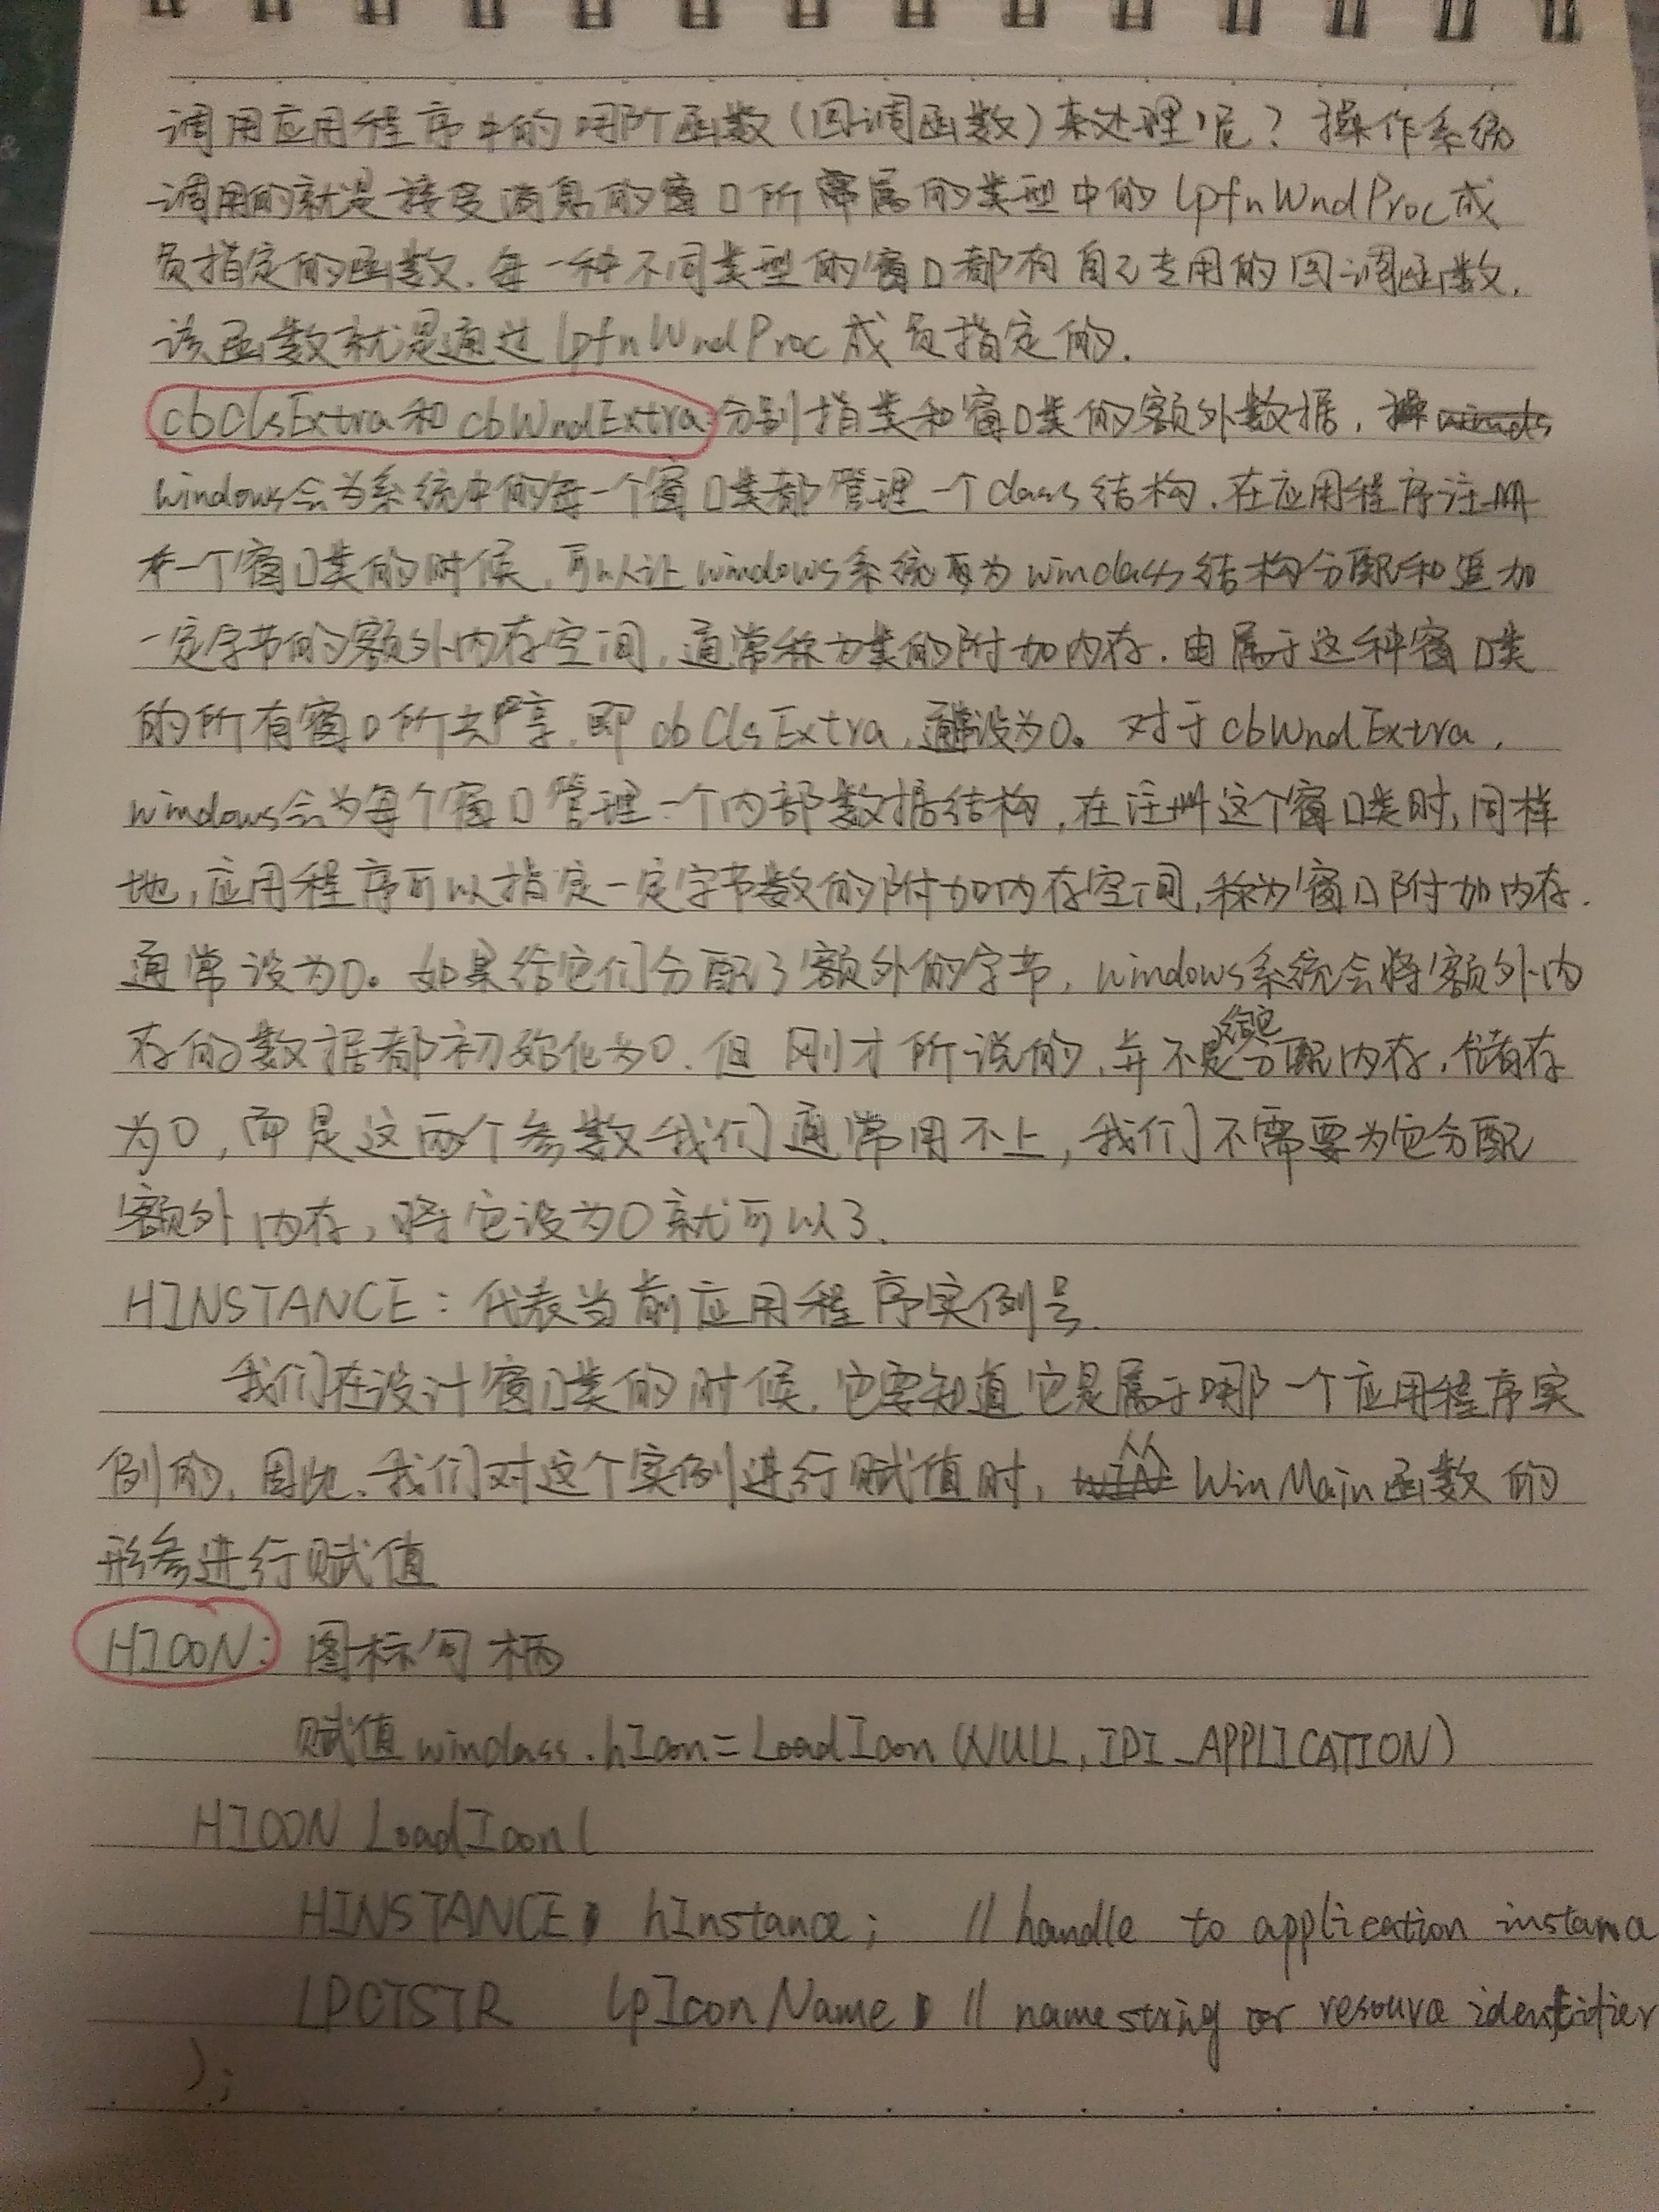 调用应用程序中的哪个函数(回调函数)来处理呢?操作系统
调用的就是接受消息的窗口所属的类型中的lpfnWndProc成
员指定的函数.每一种不同类型的窗口都有自己专用的回调函数,
该函数就是通过lpfnWndProc成员指定的.
cbClsExtra和cbWndExtra:分别指类和窗口类的额外数据,
windows会为系统中的每一个窗口类都管理一个class结构.在应用程序注册
一个窗口类的时候,可以让windows系统再为winclass结构分配和追加
一定字节的额外内存空间,通常称为类的附加内存.由属于这种窗口类
的所有窗口所共享.即cbClsExtra,通常设为0。对于cbWndExtra,
windows会为每个窗口管理一个内部数据结构,在注册这个窗口类时,同样
地,应用程序可以指定一定字节数的附加内存空间,称为窗口附加内存.
通常设为0。如果给它们分配了额外的字节,windows系统会将额外内
存的数据都初始化为0.但刚才所说的,并不是给它分配内存,储存
为0,而是这两个参数我们通常用不上,我们不需要为它分配
额外内存,将它设为0就可以了.
HINSTANCE:代表当前应用程序实例号.
我们在设计窗口类的时候,它要知道它是属于哪一个应用程序实
例的,因此,我们对这个实例进行赋值时,从WinMain函数的
形参进行赋值
HICON:图标句柄
赋值winclass.hIcon=LoadIcon(NULL,IDI_APPLICATION)
HICON LoadIcon(
HINSTANCE hInstance; //handle to application instance
LPCTSTR lpIconName //name string or resource identifier
);